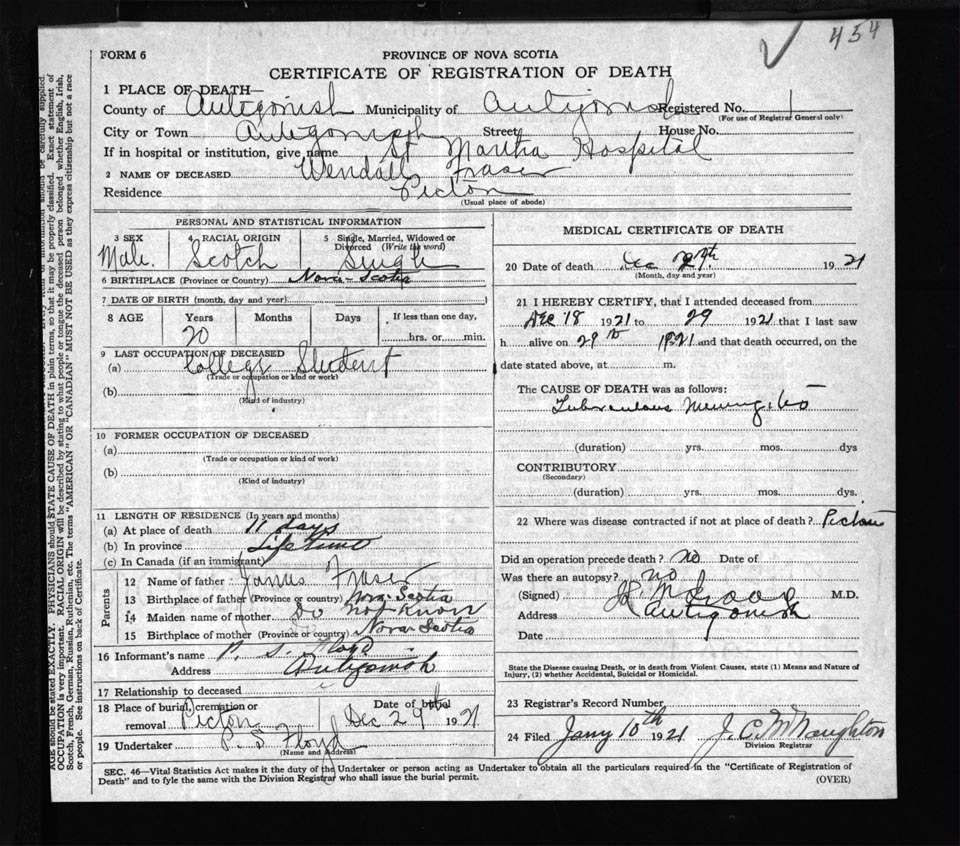 454
FORM 6
PROVINCE OF NOVA SCOTIA
CERTIFICATE OF REGISTRATION OF DEATH
1 PLACE OF DEATH—
County of Antigonish Municipality of Antigonish Registered No. 1
(For use of Registrar General only)
City or Town Antigonish Street House No.
If in hospital or institution, give name St Martha Hospital
2 NAME OF DECEASED Wendall Fraser
Residence Picton
(Usual place of abode)
PERSONAL AND STATISTICAL INFORMATION
3 SEX 4 RACIAL ORIGIN 5 Single, Married, Widowed or Divorced (Write the word)
Male. Scotch Single
6 BIRTHPLACE (Province or Country) Nova-Scotia
7 DATE OF BIRTH (month, day and year)
8 AGE Years Months Days If less than one day,
20 hrs. or min.
9 LAST OCCUPATION OF DECEASED
(a) College Student
(Trade or occupation or kind or work)
(b)
(Kind of industry)
10 FORMER OCCUPATION OF DECEASED
(a)
(Trade or occupation or kind of work)
(b)
(Kind of industry)
11 LENGTH OF RESIDENCE (In years and months)
(a) At place of death 11 days
(b) In province Lifetime
(c) In Canada (if an immigrant)
Parents
12 Name of father James Fraser
13 Birthplace of father (Province or country) Nova-Scotia
14 Maiden name of mother Do not Know
15 Birthplace of mother (Province or country) Nova-Scotia
16 Informant's name P. S. Floyd
Address Antigonish
17 Relationship to deceased
18 Place of burial, cremation or removal Picton Date of burial Dec 29th 1921
19 Undertaker P. S Floyd
(Name and Address)
MEDICAL CERTIFICATE OF DEATH
20 Date of death Dec 29th 1921
(Month, day and year)
21 I HEREBY CERTIFY, that I attended deceased from
Dec 18 1921 to 29 1921 that I last saw
h alive on 29th 1921 and that death occurred, on the
date stated above, at m.
The CAUSE OF DEATH was as follows:
Tuberculous Meningitis
(duration) yrs. mos. dys
CONTRIBUTORY
(Secondary)
(duration) yrs. mos. dys.
22 Where was disease contracted if not at place of death? Pictou
Did an operation precede death? No Date of
Was there an autopsy? no
(Signed) M.D.
Address Antigonish
Date
State the Disease causing Death, or in death from Violent Causes, state (1) Means and Nature of
Injury, (2) whether Accidental, Suicidal or Homicidal.
23 Registrar's Record Number
24 Filed Jany 10th 1921 J. C. McNaughton
Division Registrar
SEC. 46—Vital Statistics Act makes it the duty of the Undertaker or person acting as Undertaker to obtain all the particulars required in the "Certificate of Registration of
Death" and to fyle the same with the Division Registrar who shall issue the burial permit.
(OVER)
AGE should be stated EXACTLY. PHYSICIANS should STATE CAUSE OF DEATH in plain terms, so that it may be properly classified. Exact statement of
OCCUPATION is very important. RACIAL ORIGIN will be described by stating to what people or tongue the deceased person belonged whether English, Irish,
Scotch, French, German, Russian, Ruthenian, etc. The terms "AMERICAN" OR "CANADIAN" MUST NOT BE USED as they express citizenship but not a race
or people. See instructions on back of Certificate.